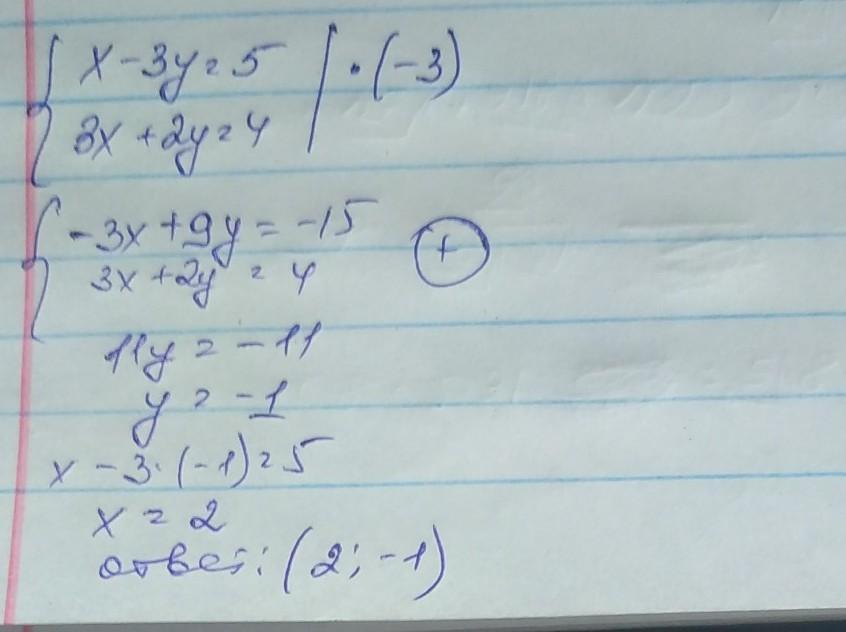 { x - 3y = 5 | · (-3)
3x + 2y = 4
{ -3x + 9y = -15 (+)
3x + 2y = 4
11y = -11
y = -1
x - 3 · (-1) = 5
x = 2
ответ: (2; -1)